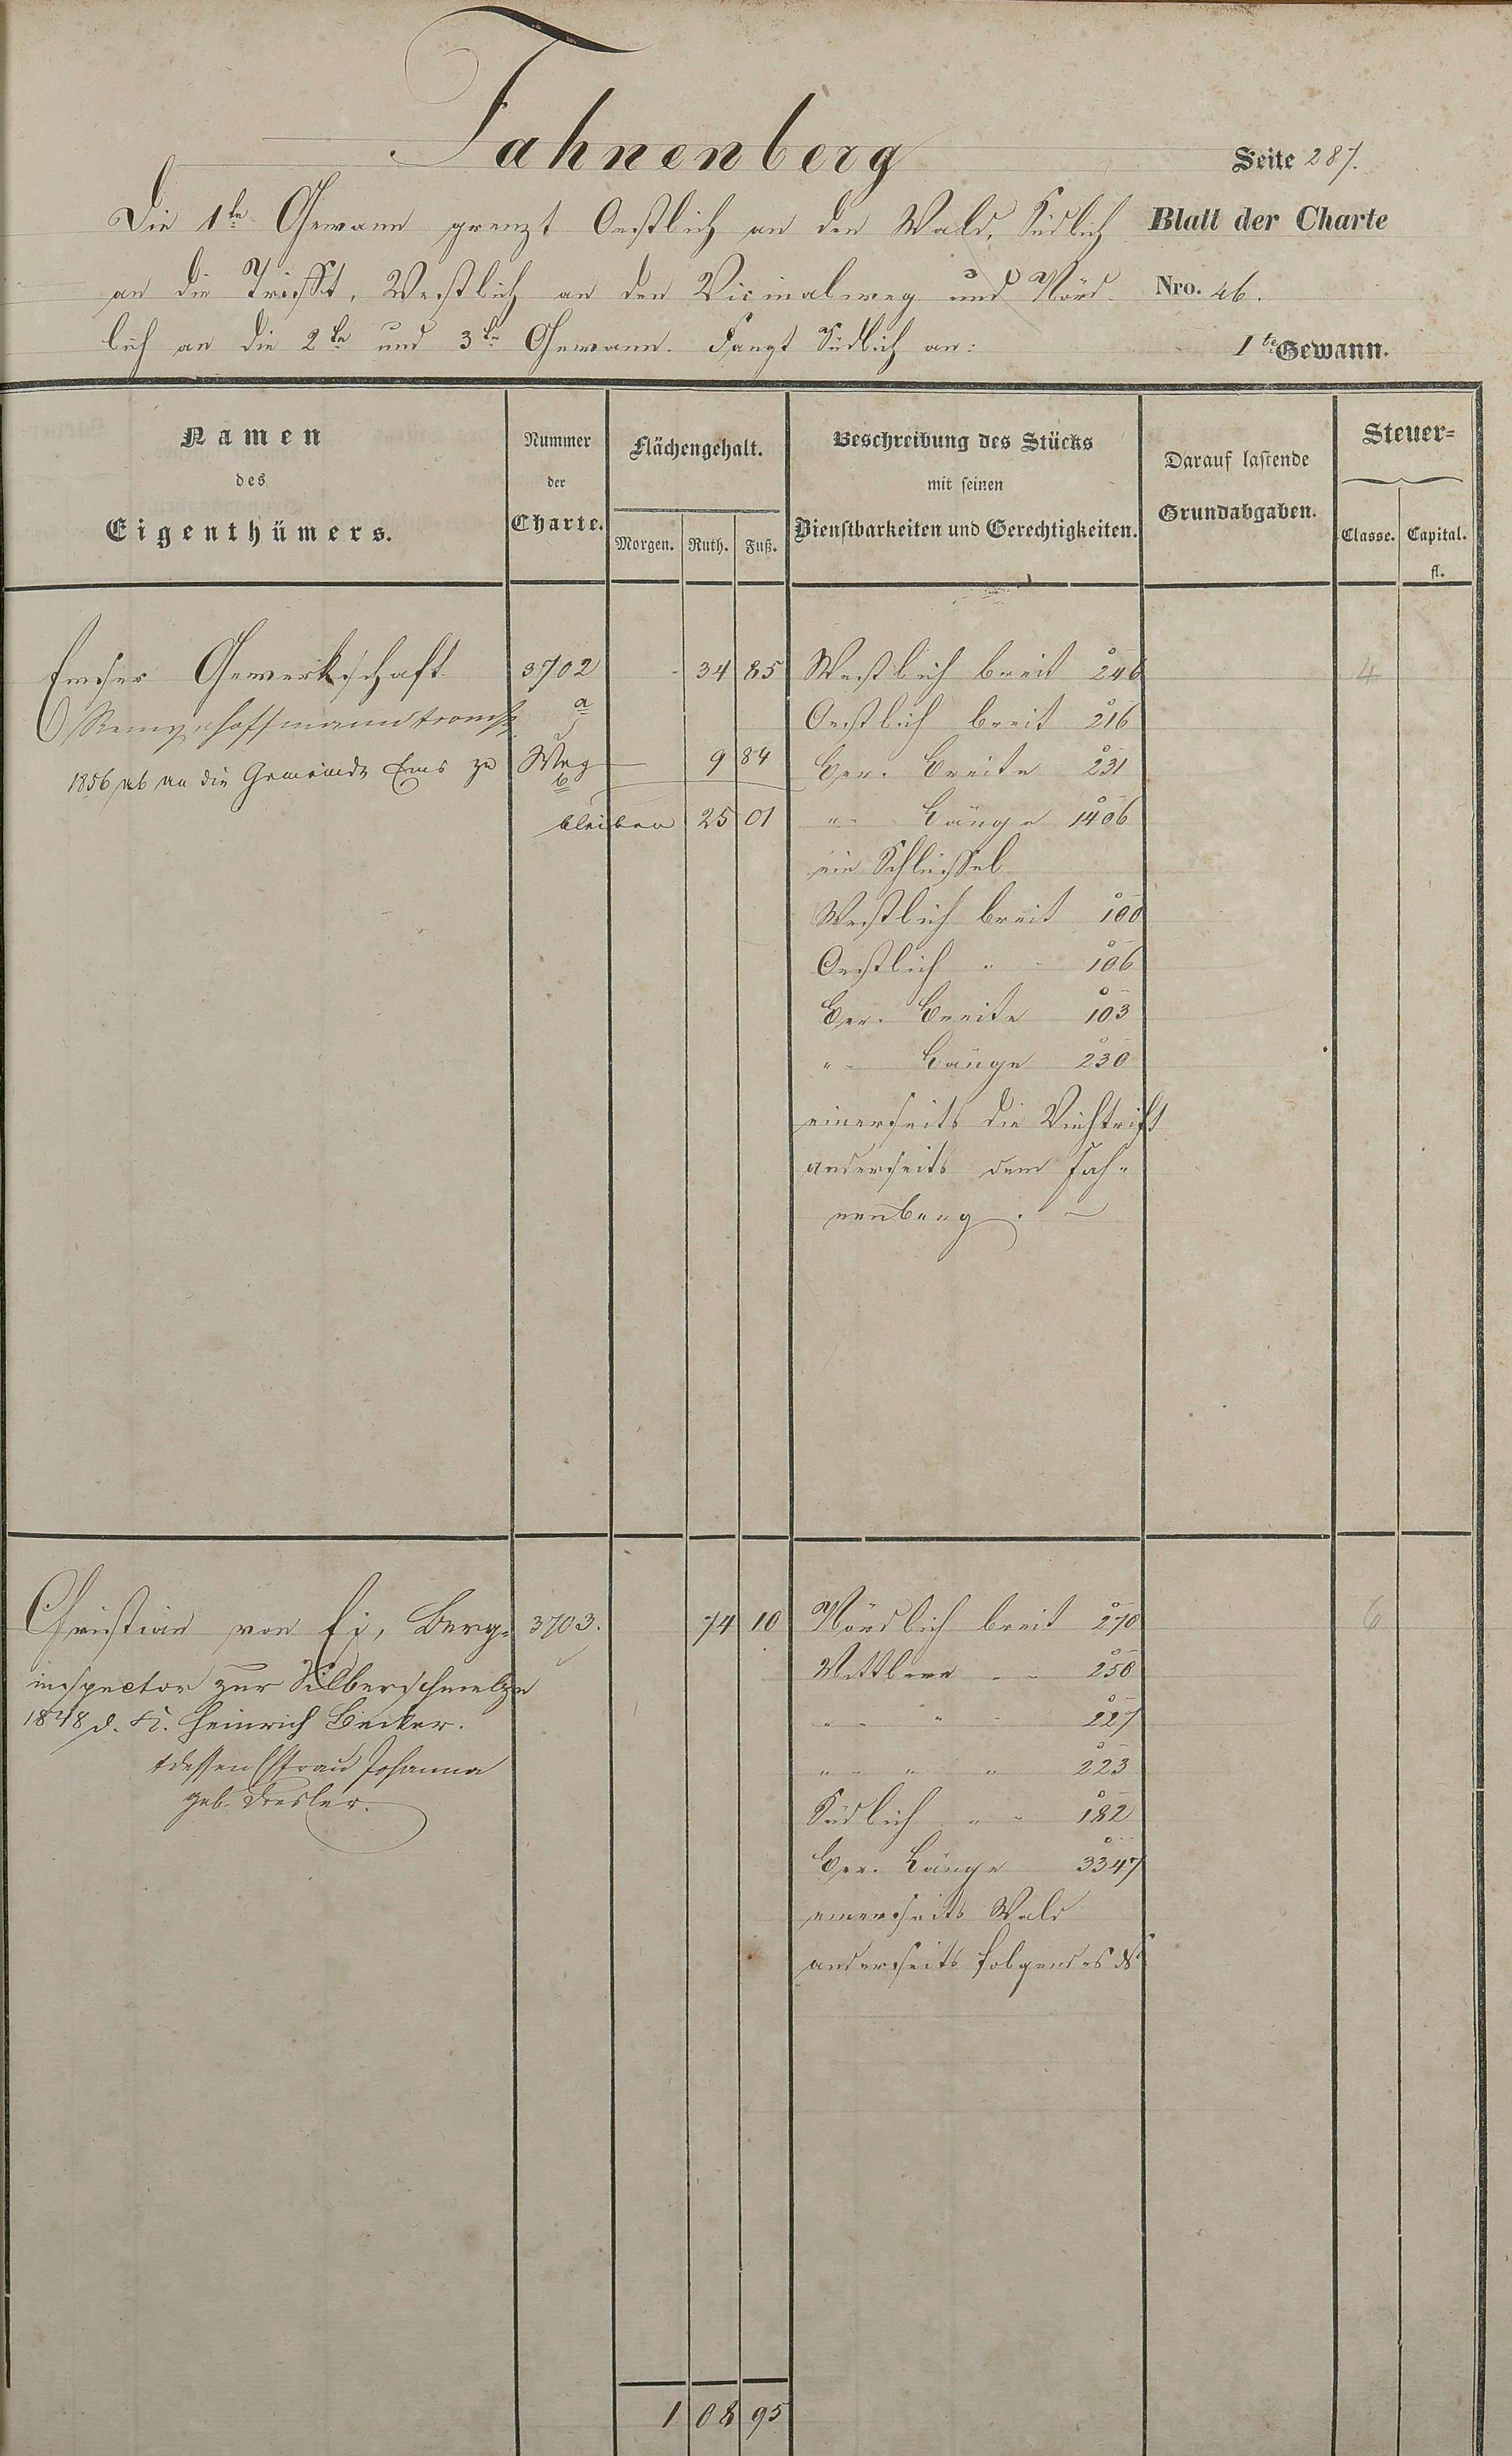 Fahnenberg
Seite 287.
Die 1te Gewann grenzt Oestlich an den Wald, Südlich
Blatt der Charte
an die Trifft, Westlich an den Vicinalweg und Nörd-
Nro. 46.
lich an die 2te und 3te Gewann. Fangt Südlich an:
1te Gewann.
Namen
des
Eigenthümers.
Nummer
der
Charte.
Flächengehalt.
Morgen. Ruth. Fuß.
Beschreibung des Stücks
mit seinen
Dienstbarkeiten und Gerechtigkeiten.
Darauf lastende
Grundabgaben.
Steuer-
Classe. Capital.
fl.
Emser Gewerkschaft 3702 - 34 85 Westlich breit 246 4
Remy, Hoffmann a Oestlich breit 216
1856 ab an die Gemeinde Ems zu Weg 9 84 Ber. Breite 231
b
bleiben 25 01 " Länge 1406
ein Schlüssel
Westlich breit 100
Oestlich " 106
Ber. Breite 103
" Länge 230
einerseits die Viehtrift
anderseits dem Fah-
nenberg.
Christian von Ei, Berg- 3703. 74 10 Nördlich breit 270 6
inspector zur Silberschmelze Mittlere " 250
1848 d. K. Heinrich Becker. " " 227
+ dessen Efrau Johanna " " " 223
geb. Dresler. Südlich " 182
Ber. Länge 3347
einerseits Wald
anderseits folgendes
1 08 95